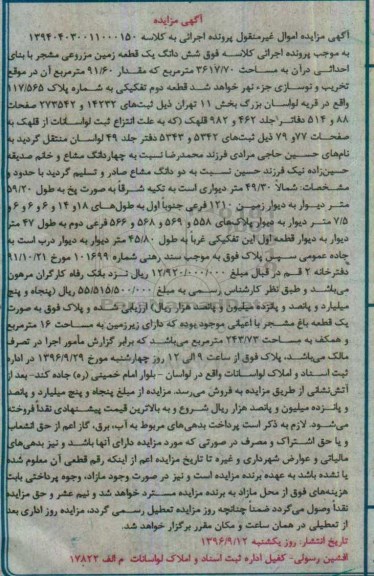 آگهی مزایده
آگهی مزایده اموال غیرمنقول پرونده اجرائی به کلاسه ۱۳۹۴۰۴۰۳۰۰۱۱۰۰۰۱۵۰
به موجب پرونده اجرائی کلاسه فوق شش دانگ یک قطعه زمین مزروعی مشجر با بنای
احداثی درآن به مساحت ۳۶۱۷/۷۰ مترمربع که مقدار ۹۱/۶۰ مترمربع آن در موقع
تخریب و نوسازی جزء نهر خواهد شد قطعه دوم تفکیکی به شماره پلاک ۱۱۷/۵۶۵
واقع در قریه لواسان بزرگ بخش ۱۱ تهران ذیل ثبت‌های ۱۴۲۳۲ و ۲۷۳۵۴۲ صفحات
۸۸ و ۵۱۴ دفاتر جلد ۴۶۲ و ۹۸۲ قلهک (که به علت انتزاع ثبت لواسانات از قلهک به
صفحات ۷۷و ۷۹ ذیل ثبت‌های ۵۳۴۲ و ۵۳۴۳ دفتر جلد ۴۹ لواسان منتقل گردید به
نام‌های حسین حاجی مرادی فرزند محمدرضا نسبت به چهاردانگ مشاع و خانم صدیقه
حسین‌زاده نیک فرزند حسین نسبت به دو دانگ مشاع صادر و تسلیم گردید با حدود و
مشخصات: شمالاً ۴۹/۳۰ متر دیواری است به تکیه شرقاً به صورت پخ به طول ۵۹/۲۰
متر دیوار به دیوار زمین ۱۲۱۰ فرعی جنوباً اول به طول‌های ۱۸و ۱۴ و ۶ و ۶ و
۷/۵ متر دیوار به دیوار پلاک‌های ۵۵۸ و ۵۶۹ و ۵۶۸ و ۵۶۶ فرعی دوم به طول ۴۷ متر
دیوار به دیوار قطعه اول این تفکیکی غرباً به طول ۴۵/۸۰ متر دیوار به دیوار درب است به
جاده عمومی سپس پلاک فوق به موجب سند رهنی شماره ۱۰۱۶۹۹ مورخ ۹۱/۱۰/۲۱
دفترخانه ۲ قم در قبال مبلغ ۱۲/۹۲۰/۰۰۰/۰۰۰ ریال نزد بانک رفاه کارگران مرهون
می‌باشد و طبق نظر کارشناس رسمی به مبلغ ۵۵/۵۱۵/۵۰۰/۰۰۰ ریال (پنجاه و پنج
میلیارد و پانصد و پانزده میلیون و پانصد هزار ریال) ارزیابی شده و پلاک فوق به صورت
یک قطعه باغ مشجر با اعیانی موجود بوده که دارای زیرزمین به مساحت ۱۶ مترمربع
و همکف به مساحت ۲۴۳/۷۳ مترمربع می‌باشد که برابر گزارش مأمور اجرا در تصرف
مالک می‌باشد، پلاک فوق از ساعت ۹ الی ۱۲ روز چهارشنبه مورخ ۱۳۹۶/۹/۲۹ در اداره
ثبت اسناد و املاک لواسانات واقع در لواسان – بلوار امام خمینی (ره) جاده کند- بعد از
آتش‌نشانی از طریق مزایده به فروش می‌رسد. مزایده از مبلغ پنجاه و پنج میلیارد و پانصد
و پانزده میلیون و پانصد هزار ریال شروع و به بالاترین قیمت پیشنهادی نقداً فروخته
می‌شود. لازم به ذکر است پرداخت بدهی‌های مربوط به آب، برق، گاز اعم از حق انشعاب
و یا حق اشتراک و مصرف در صورتی که مورد مزایده دارای آنها باشد و نیز بدهی‌های
مالیاتی و عوارض شهرداری و غیره تا تاریخ مزایده اعم از اینکه رقم قطعی آن معلوم شده
یا نشده باشد به عهده برنده مزایده است و نیز در صورت وجود مازاد، وجوه پرداختی بابت
هزینه‌های فوق از محل مازاد به برنده مزایده مسترد خواهد شد و نیم عشر و حق مزایده
نقداً وصول می‌گردد ضمناً چنانچه روز مزایده تعطیل رسمی گردد، مزایده روز اداری بعد
از تعطیلی در همان ساعت و مکان مقرر برگزار خواهد شد.
تاریخ انتشار: روز یکشنبه ۱۳۹۶/۹/۱۲
افشین رسولی- کفیل اداره ثبت اسناد و املاک لواسانات م الف ۱۷۸۲۳